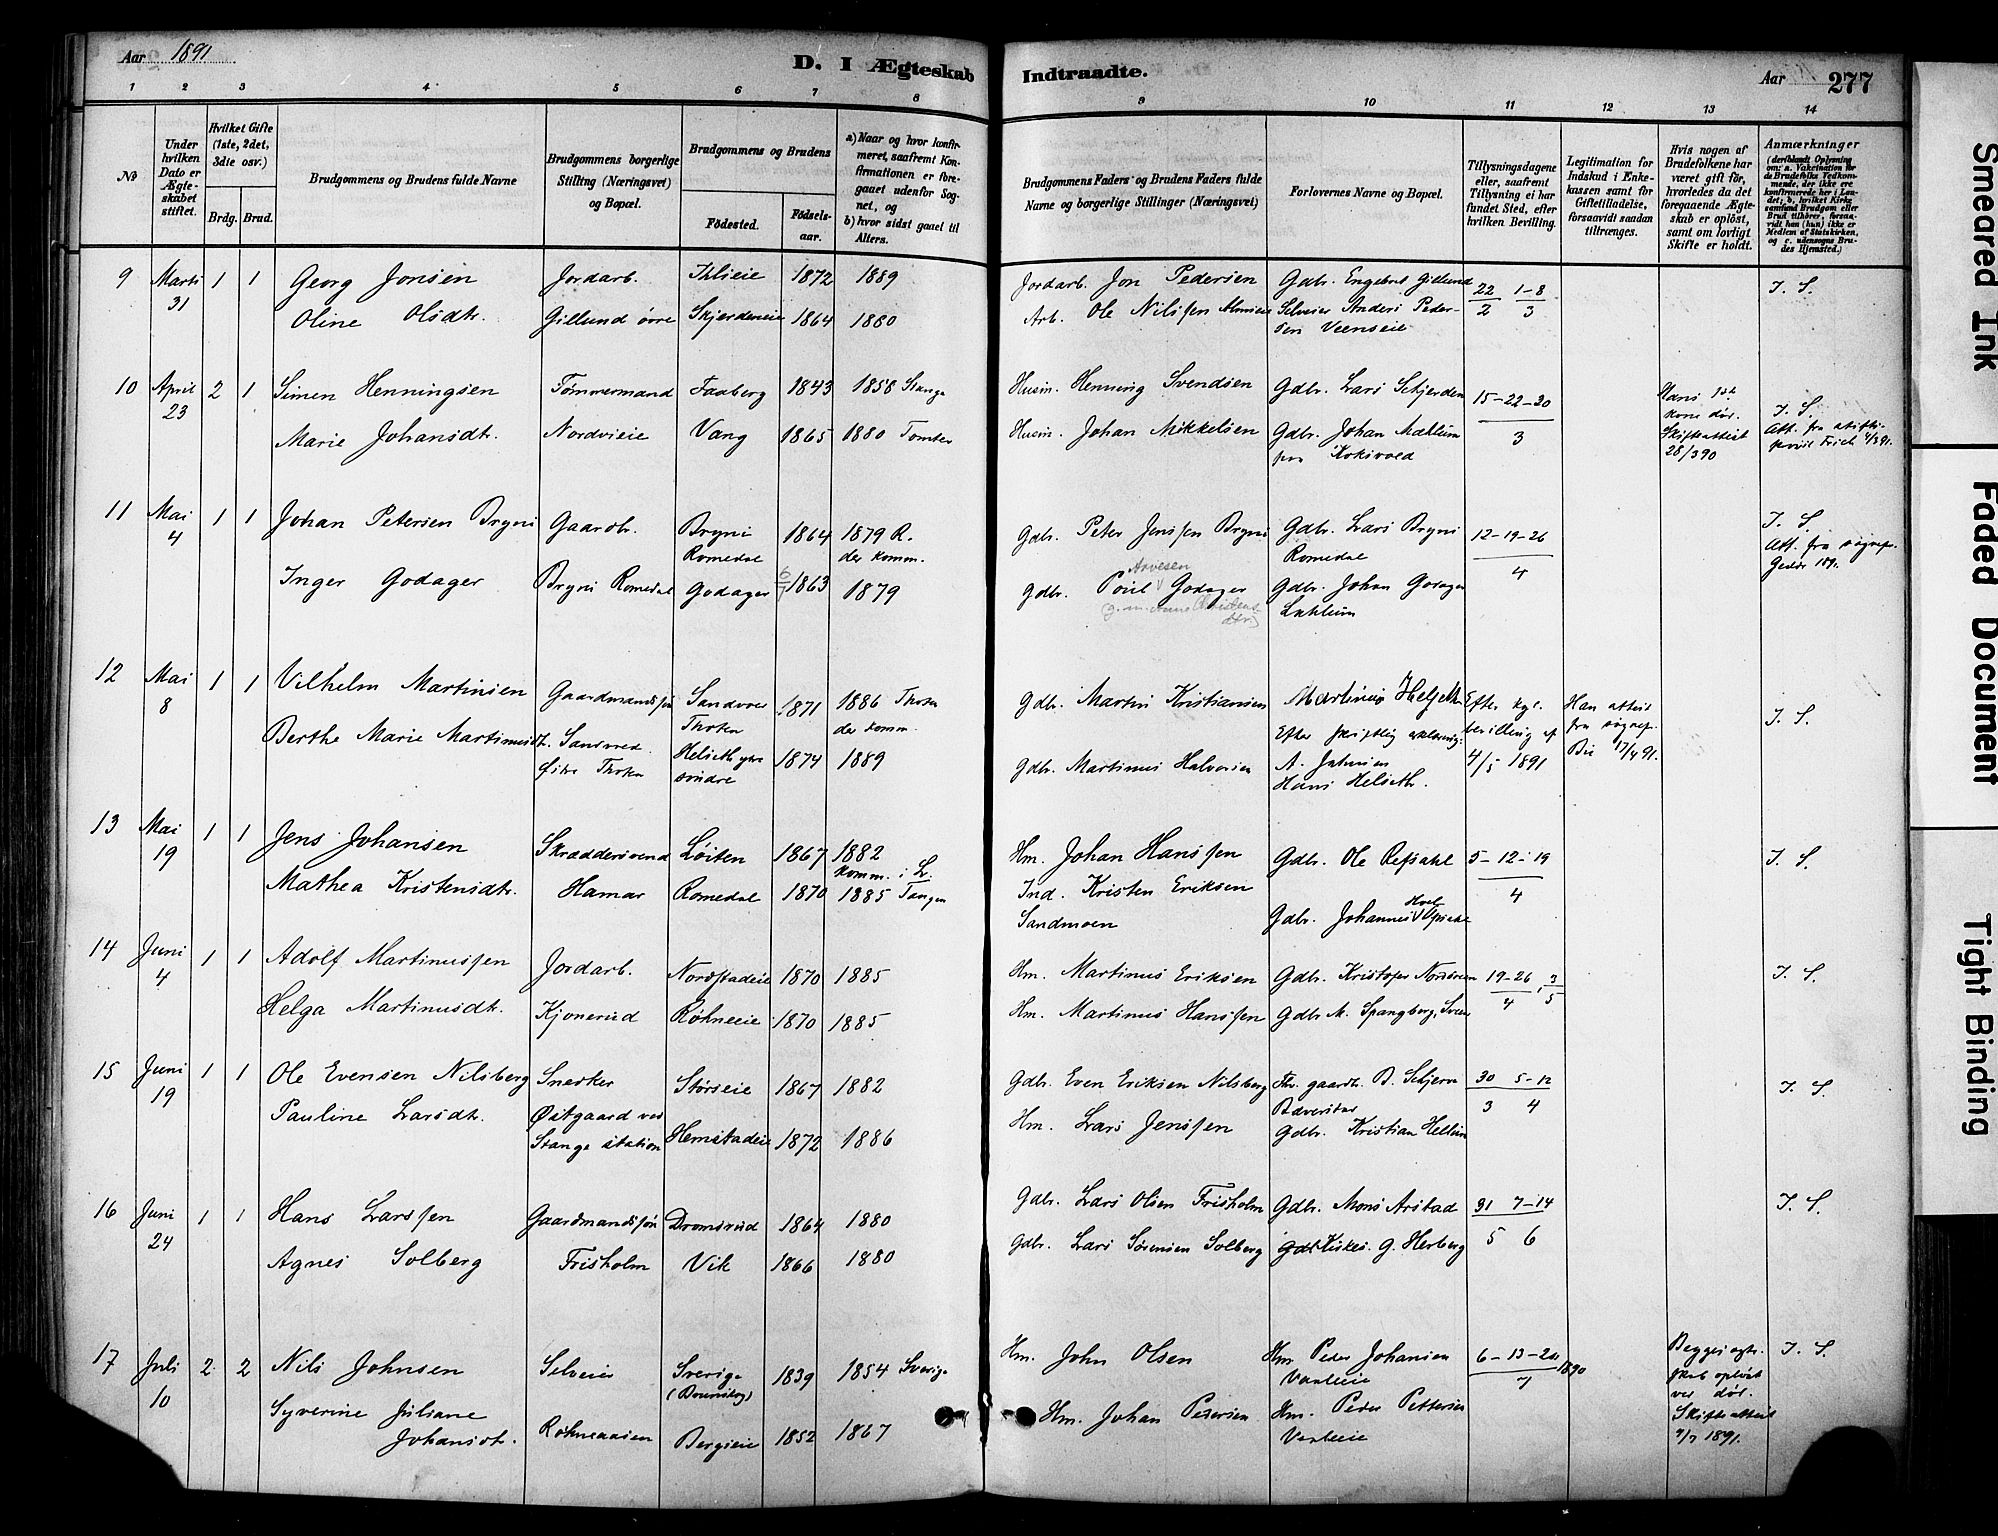 Aar 1891
D. I Ægteskab Indtraadte.
Aar 277
1 2 3 4 5 6 7 8 9 10 11 12 13 14
No
Under hvilken Dato er Ægteskabet stiftet.
Hvilket Gifte (1ste, 2det, 3die osv.)
Brdg. Brud.
Brudgommens og Brudens fulde Navne
Brudgommens borgerlige Stilling (Næringsvei) og Bopæl.
Brudgommens og Brudens
Fødested. Fødselsaar.
a) Naar og hvor konfirmeret, saafremt Konfirmationen er foregaaet udenfor Sognet, og
b) hvor sidst gaaet til Alters.
Brudgommens Faders og Brudens Faders fulde Navne og borgerlige Stillinger (Næringsvei)
Forlovernes Navne og Bopæl.
Tillysningsdagene eller, saafremt Tillysning ei har fundet Sted, efter hvilken Bevilling.
Legitimation for Indskud i Enkekassen samt for Giftetilladelse, forsaavidt saadan tiltrænges.
Hvis nogen af Brudefolkene har været gift før, hvorledes da det foregaaende Ægteskab er opløst, samt om lovligt Skifte er holdt.
Anmærkninger (deriblandt Oplysning om: a. Vakcination for de Brudefolks Vedkommende, der ikke ere konfirmerede her i Landet; b. hvilket Kirkesamfund Brudgom eller Brud tilhører, forsaavidt han (hun) ikke er Medlem af Statskirken, og c. udensogns Brudes Hjemsted.)
9 Marts 31 1 1 Georg Jonsen Jordarb. 1872 1889 Jordarb. Jon Pedersen Gdbr. Engebret Gillund 22 1-8 J. S.
Oline Olsdtr. Gillund øvre Skjerdeneie 1864 1880 Arb. Ole Nilssen Selveier Anders Pedersen Veenseie 2 3
10 April 23 2 1 Simen Henningsen Tømmermand Faaberg 1843 1858 Stange Husm. Henning Svendsen Gdbr. Lars Skjerden 15-22-20 Hans 1ste kone død. J. S.
Marie Johansdtr. Nordvieie Vang 1865 1880 Tomter Husm. Johan Mikkelsen Gdbr. Johan Mællum 3 Skifteattest 28/3 90
11 Mai 4 1 1 Johan Petersen Bryni Gaardbr. Bryni Romedal 1864 1879 R. der komm. Gdbr. Peter Jenssen Bryni Gdbr. Lars Bryni Romedal 12-19-26 J. S.
Att. fra sognep.
Inger Godager Bryni Romedal Godager 6/7 1863 1879 Gdbr. Poul Arvesen Godager Gdbr. Johan Godager 4
12 Mai 8 1 1 Vilhelm Martinsen Gaardmandssøn Thoten 1871 1886 Thoten der komm. Gdbr. Martin Kristiansen Martinus Helseth Efter kgl. bevilling af Han attest fra sognep. J. S.
Berthe Marie Martinusdtr. Østre Thoten Helseth søndre 1874 1889 Gdbr. Martinus Halvorsen Efter skriftlig erklæring. Hans Helseth. 4/5 1891 17/4 91.
13 Mai 19 1 1 Jens Johansen Skræddersvend Løiten 1867 1882 komm. i L. Hm. Johan Hanssen Gdbr. Ole Refsahl 5-12-19 J. S.
Mathea Kristensdtr. Hamar Romedal 1870 1885 Tangen Ind. Kristen Eriksen Sandmoen Gdbr. Johannes 4
14 Juni 4 1 1 Adolf Martinussen Jordarb. Nordstadeie 1870 1885 Hm. Martinus Eriksen Gdbr. Kristofer 19-26 3 J. S.
Helga Martinusdtr. Kjonerud Røhneeie 1870 1885 Hm. Martinus Hanssen Gdbr. M. Spangberg, 4 5
15 Juni 19 1 1 Ole Evensen Nilsberg Snedker Størseie 1867 1882 Gdbr. Even Eriksen Nilsberg Fhv. gaardbr. B. Skjerve 30 5-12 J. S.
Pauline Larsdtr. Østgaard ved Stange station Hemstadeie 1872 1886 Hm. Lars Jenssen Gdbr. Kristian Hellum 3 4
16 Juni 24 1 1 Hans Larssen Gaardmandssøn Dromsrud 1864 1880 Gdbr. Lars Olsen Frisholm Gdbr. Mons Arstad 31 7-14 J. S.
Agnes Solberg Frisholm Vik 1866 1880 Gdbr. Lars Sørensen Solberg G. Herberg 5 6
17 Juli 10 2 2 Nils Johnsen Selveier Sverige 1839 1854 Sverige Hm. John Olsen Hm. Peder Johansen 6-13-20 1890 Begges egteskab opløst ved død. J. S.
Syverine Juliane Johansdt. Røhneaasen Bergseie 1852 1867 Hm. Johan Petersen Hm. Peder Pettersen 7 Skifteattest 9/7 1891.
Smeared Ink
Faded Document
Tight Binding